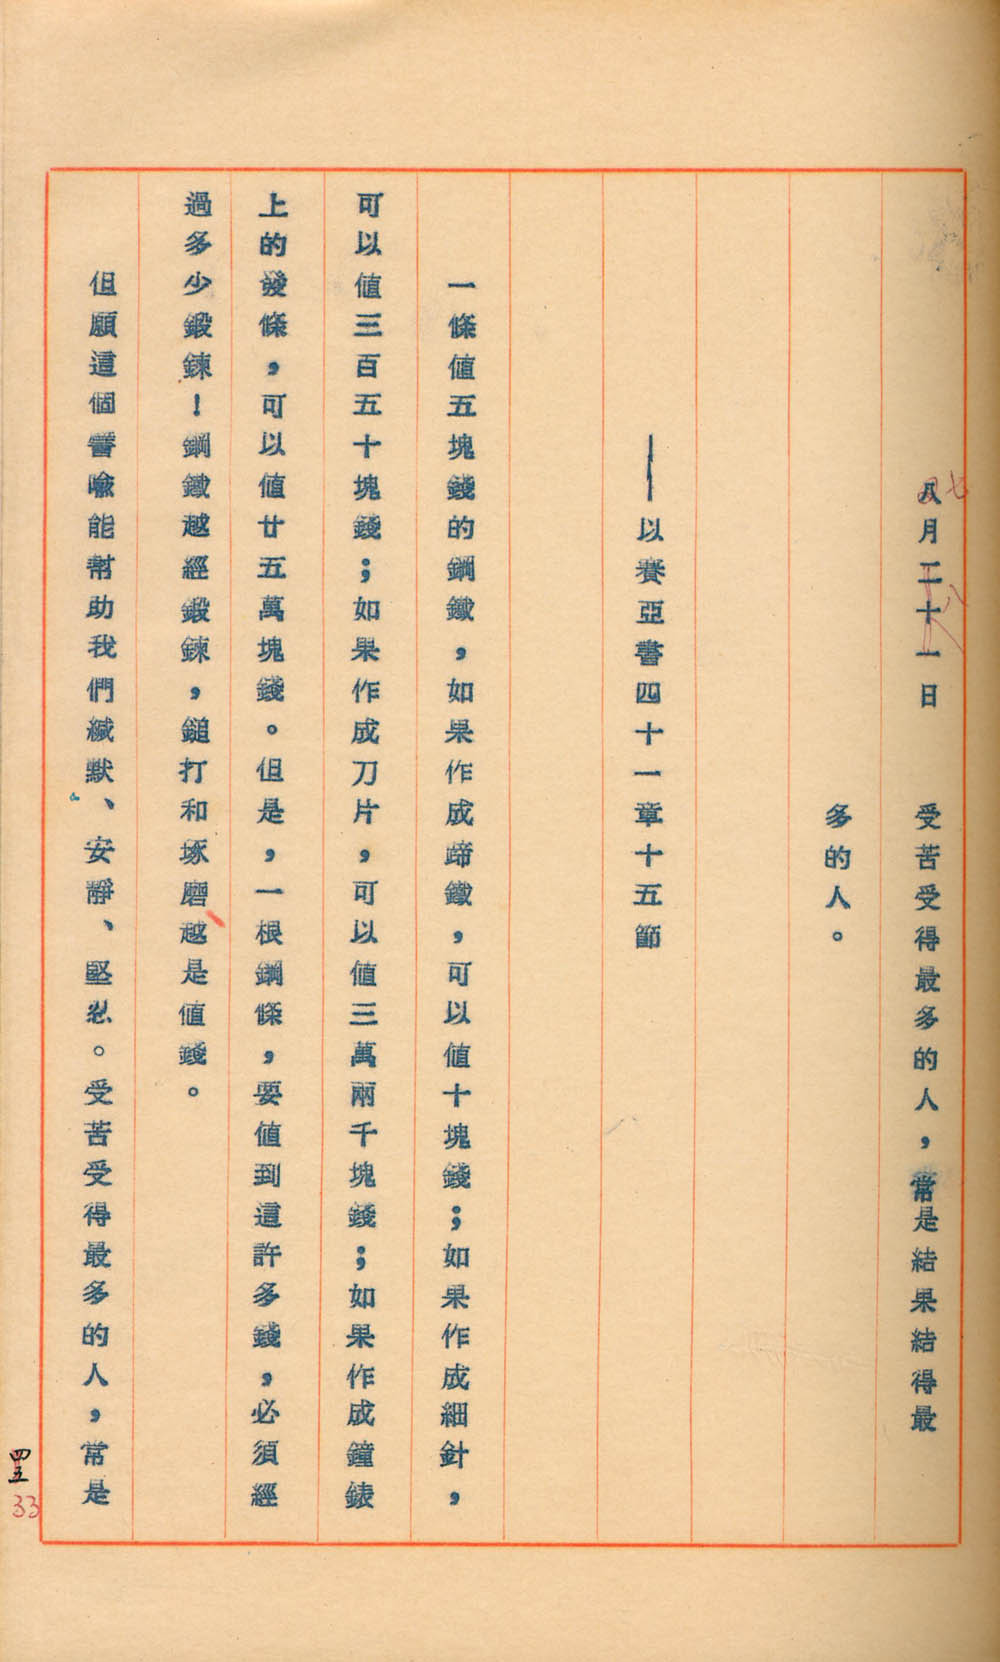 八月二十一日　受苦受得最多的人，常是結果結得最
多的人。
——以賽亞書四十一章十五節
一條值五塊錢的鋼鐵，如果作成蹄鐵，可以值十塊錢；如果作成細針，
可以值三百五十塊錢；如果作成刀片，可以值三萬兩千塊錢；如果作成鐘錶
上的發條，可以值廿五萬塊錢。但是，一根鋼條，要值到這許多錢，必須經
過多少鍛鍊！鋼鐵越經鍛鍊，鎚打和琢磨越是值錢。
但願這個譬喻能幫助我們緘默、安靜、堅忍。受苦受得最多的人，常是
七
八
四五
33